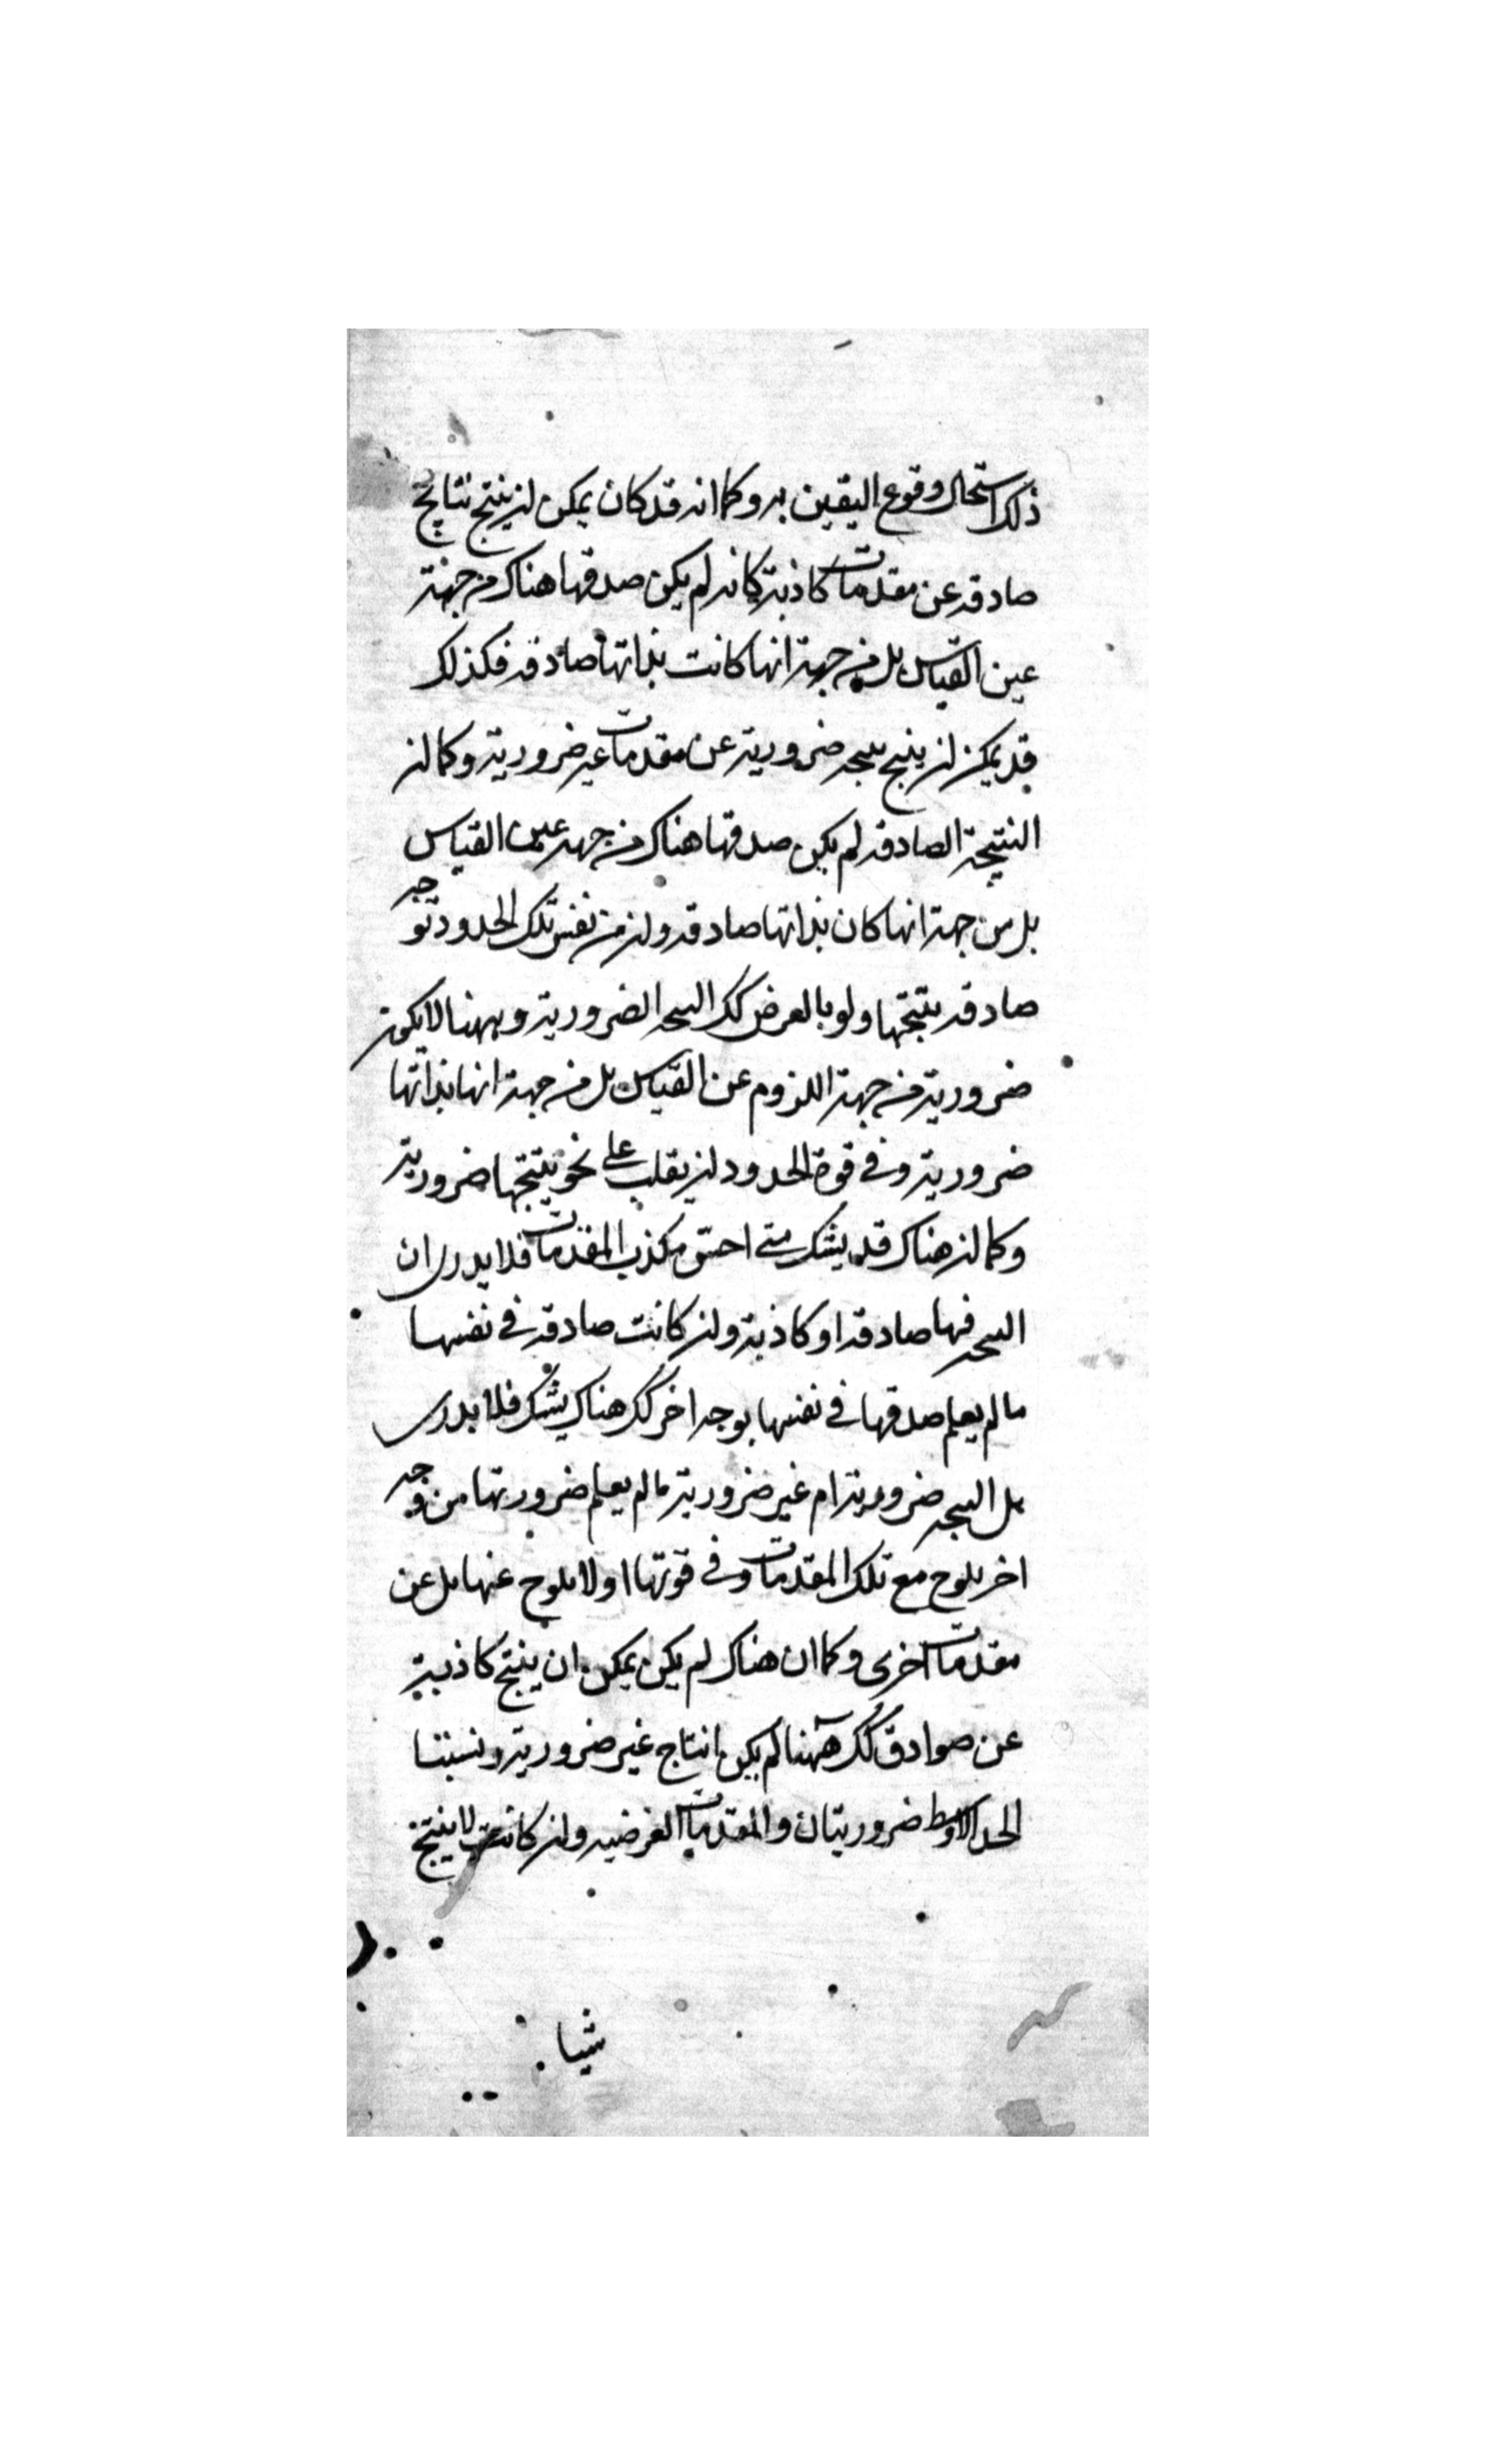 ذلك استحال وقوع اليقين به وكما انه قد كان يمكن ان ينتج نتايج
صادقه عن مقدمات كاذبة كانه لم يكن صدقها هناك من جهة
عين القياس بل من جهة انها كانت بذاتها صادقه فكذلك
قد يمكن ان ينتج نتيجه ضرورية عن مقدمات غير ضرورية وكما ان
النتيجة الصادقه لم يكن صدقها هناك من جهة عين القياس
بل من جهة انها كان بذاتها صادقه وان من نفس تلك الحدود توجه
صادقه ينتجها ولو بالعرض كك النتيجه الضرورية وههنا لا يكون
ضرورية من جهة اللزوم عن القياس بل من جهة انها بذاتها
ضرورية وفي قوة الحدود ان يقلب على نحو ينتجها ضرورية
وكما ان هناك قد يشك متى احس بكذب المقدمات فلا يدرى ان
النتيجه فيها صادقه او كاذبة وان كانت صادقه في نفسها
ما لم يعلم صدقها في نفسها بوجه اخر كك هناك يشك فلا يدرى
هل النتيجه ضرورية ام غير ضرورية ما لم يعلم ضرورتها من وجه
اخر يلوح مع تلك المقدمات وفي قوتها او لا يلوح عنها بل عن
مقدمات اخرى وكما ان هناك لم يكن يمكن ان ينتج كاذبة
عن صوادق كك ههنا لم يكن انتاج غير ضرورية ونسبتا
الحد الاوسط ضروريتان والمقدمات العرضيه وان كانت لا ينتج
شيا